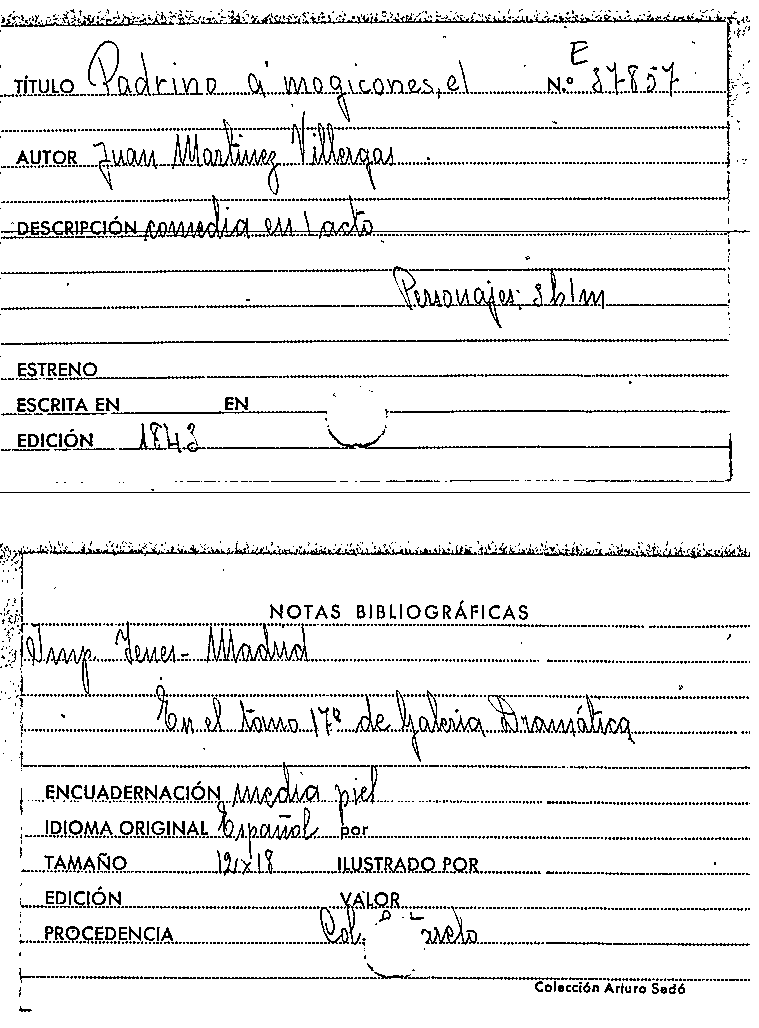 TÍTULO Padrino a mogicones, el N.º E 37857
AUTOR Juan Martinez Villergas
DESCRIPCIÓN comedia en 1 acto
Personajes: 8h1m
ESTRENO
ESCRITA EN EN
EDICIÓN 1843
NOTAS BIBLIOGRÁFICAS
Imp. Yenes - Madrid
En el tomo 17º de Galeria Dramática
ENCUADERNACIÓN media piel
IDIOMA ORIGINAL Español por
TAMAÑO 12x18 ILUSTRADO POR
EDICIÓN VALOR
PROCEDENCIA Col.
Colección Arturo Sedó